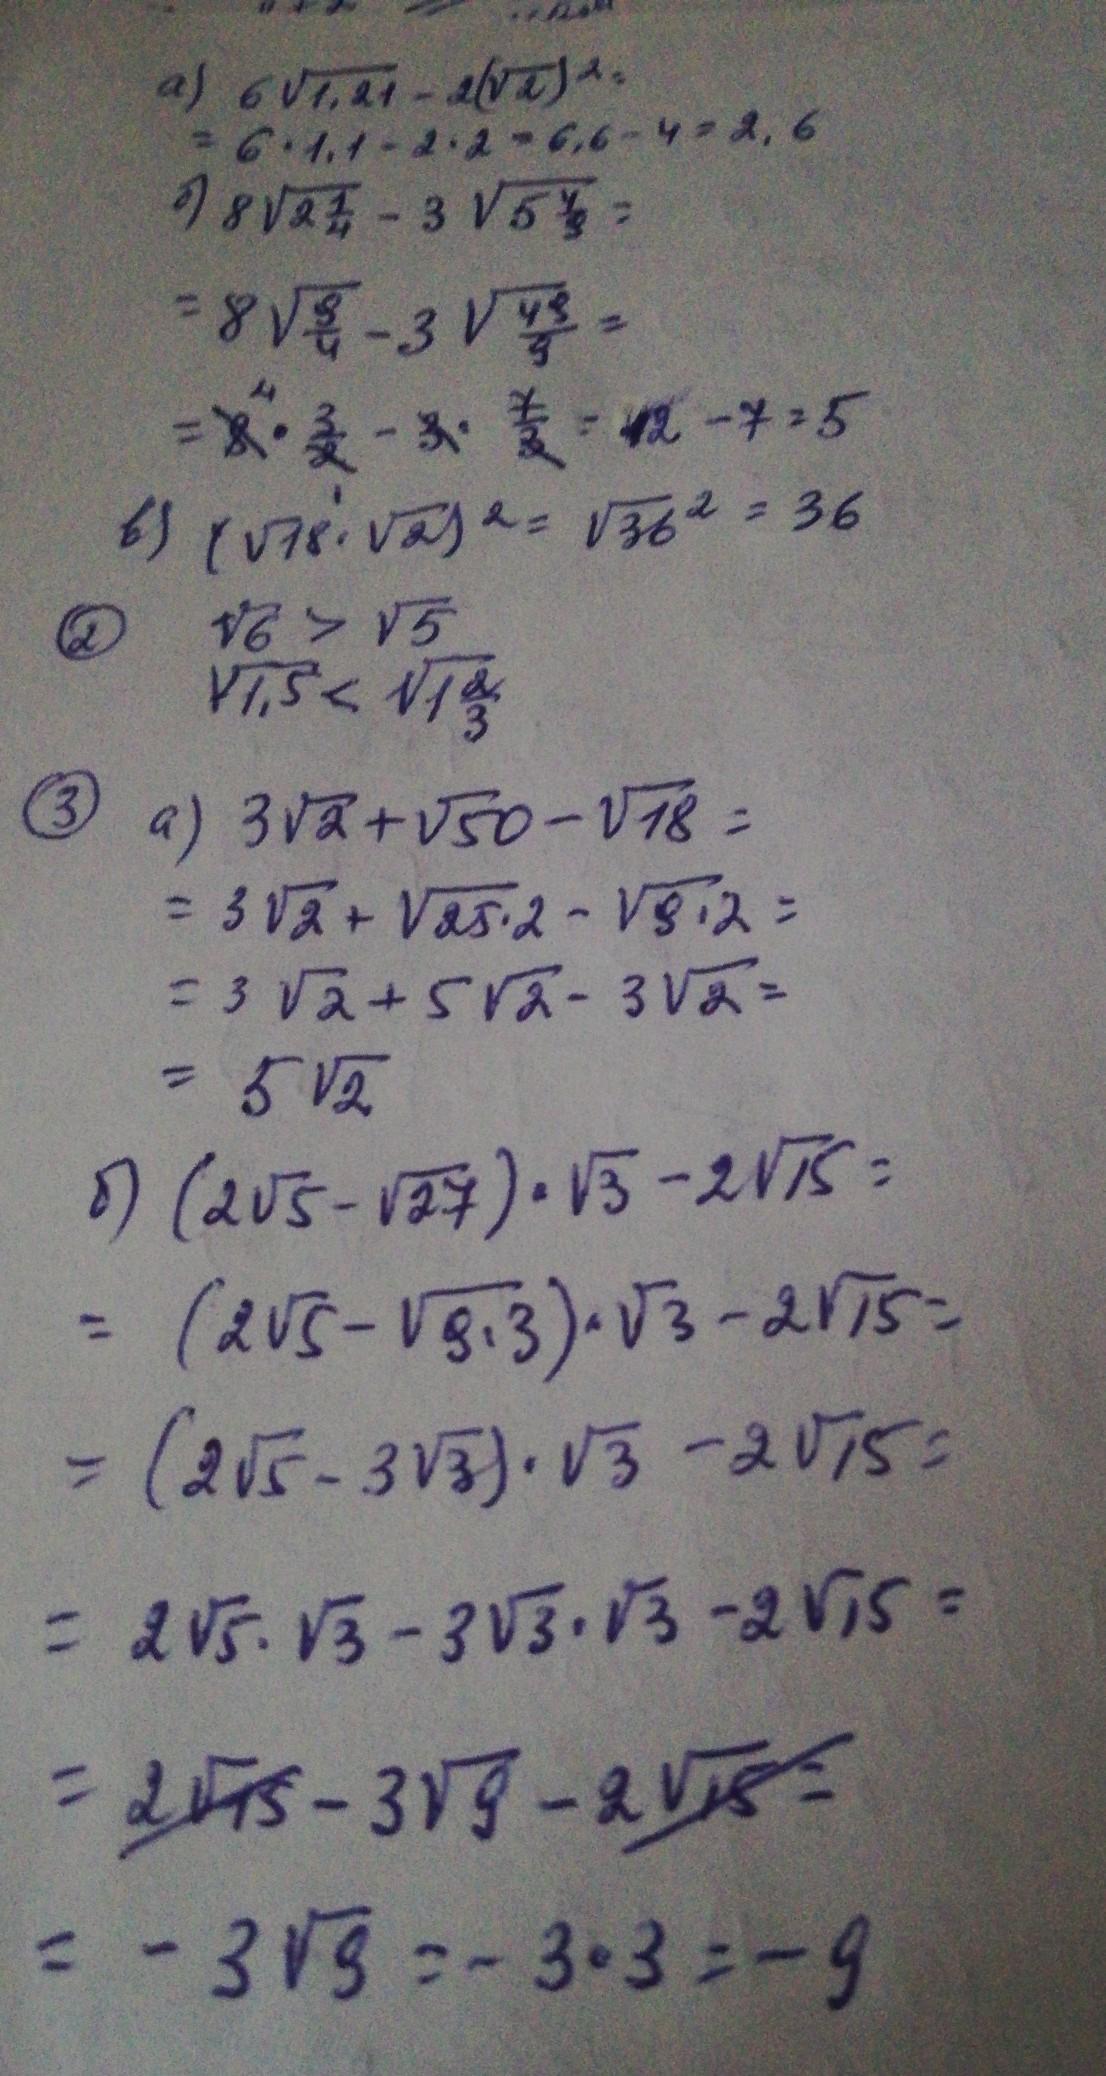 а) 6√1,21 - 2(√2)² =
= 6 · 1,1 - 2 · 2 = 6,6 - 4 = 2,6
б) 8√2 1/4 - 3√5 4/9 =
= 8√9/4 - 3√49/9 =
= 8 4 · 3/2 - 3 · 7/3 = 12 - 7 = 5
в) (√18 · √2)² = √36² = 36
② √6 > √5
√1,5 < √1 2/3
③ а) 3√2 + √50 - √18 =
= 3√2 + √25·2 - √9·2 =
= 3√2 + 5√2 - 3√2 =
= 5√2
б) (2√5 - √27) · √3 - 2√15 =
= (2√5 - √9·3) · √3 - 2√15 =
= (2√5 - 3√3) · √3 - 2√15 =
= 2√5 · √3 - 3√3 · √3 - 2√15 =
= 2√15 - 3√9 - 2√15 =
= - 3√9 = - 3 · 3 = - 9